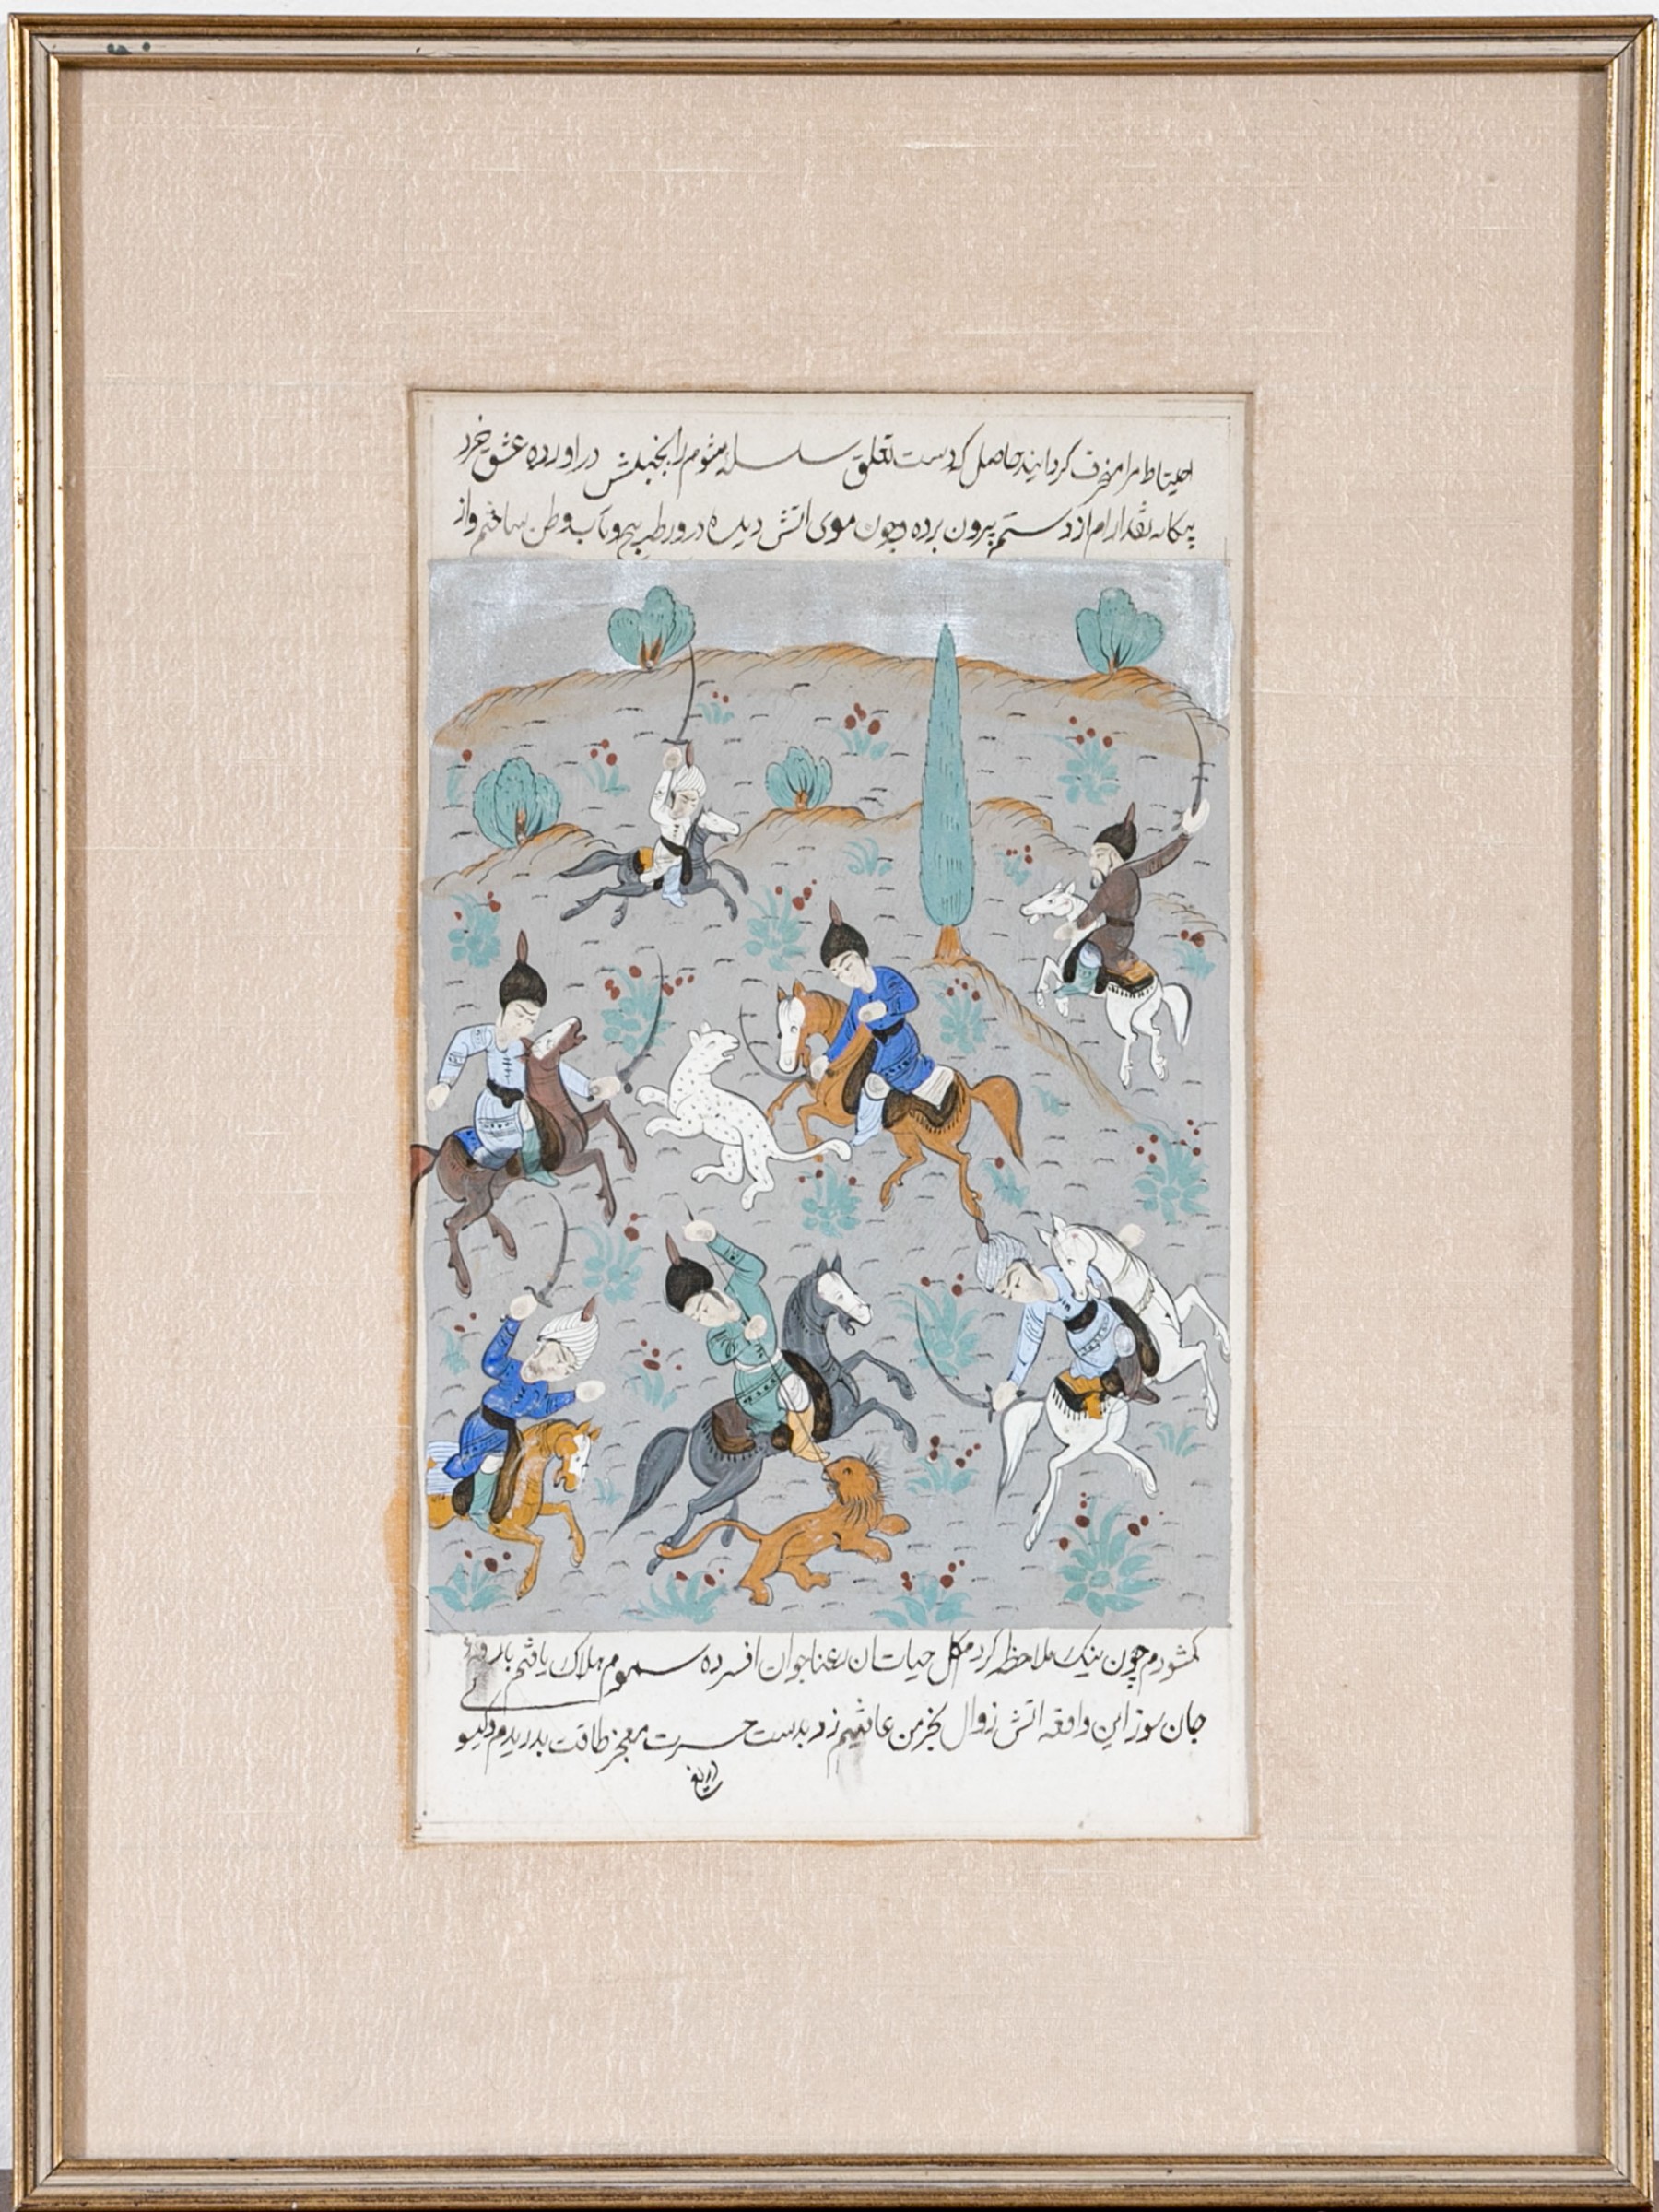 احتیاط مرا منحرف گردانید حاصل که دست تعلق سلسله شوم را بجنبش دراورده عشق خرد
بیکانه نقد ارام از دستم بیرون برده و چون موی اتش دیده در ورطه پیچ و تاب وطن ساختم و از
کشودم چون نیک ملاحظه کردم کل حیات ان رعنا جوان افسرده سموم هلاک یافتم
جان سوز این واقعه اتش زوال بخرمن عافیتم زد بدست حسرت معجز طاقت بدریدم
دریغ